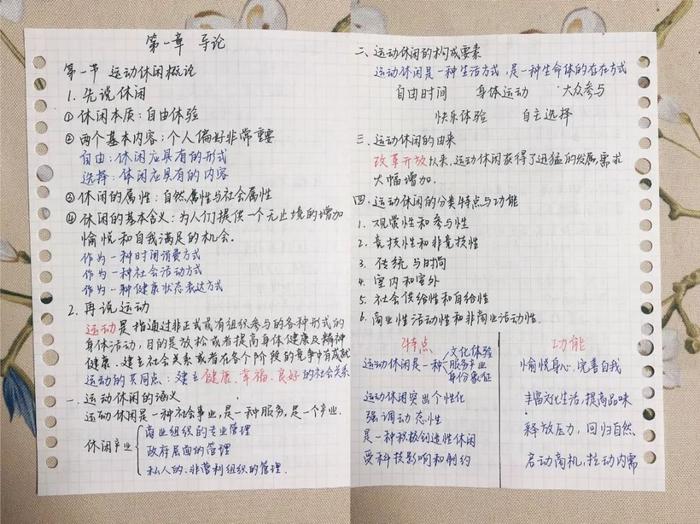 第一章 导论
第一节 运动休闲概论
1. 先说休闲
① 休闲本质：自由体验
② 两个基本内容：个人偏好非常重要
自由：休闲应具有的形式
选择：休闲应具有的内容
③ 休闲的属性：自然属性与社会属性
④ 休闲的基本含义：为人们提供一个无止境的增加
愉悦和自我满足的机会。
作为一种时间消费方式
作为一种社会活动方式
作为一种健康状态表达方式
2. 再说运动
运动是指通过非正式或有组织参与的各种形式的
身体活动，目的是放松或者提高身体健康及精神
健康、建立社会关系或者在各个阶段的竞争中有成就
运动的共同点：建立健康、幸福、良好的社会关系
一. 运动休闲的涵义
运动休闲是一种社会事业，是一种服务，是一个产业.
休闲产业
商业组织的专业管理
政府层面的管理
私人的、非营利组织的管理.
二. 运动休闲的构成要素
运动休闲是一种生活方式，是一种生命体的存在方式
自由时间 身体运动 大众参与
快乐体验 自主选择
三. 运动休闲的由来
改革开放以来，运动休闲获得了迅猛的发展，需求
大幅增加.
四. 运动休闲的分类特点与功能
1. 观赏性和参与性
2. 竞技性和非竞技性
3. 传统与时尚
4. 室内和室外
5. 社会供给性和自给性
6. 商业性活动性和非商业活动性.
特点 功能
运动休闲是一种 文化体验 服务产业 身份象征
愉悦身心，完善自我
运动休闲突出个性化
丰富文化生活，提高品味
强调动态性
是一种积极创造性休闲
释放压力，回归自然
受科技影响和制约
启动商机，拉动内需